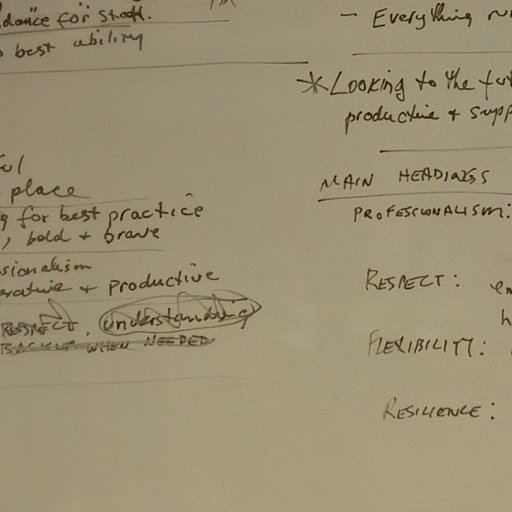 dance for staff.
best ability
ful
place
for best practice
, bold + brave
sionalism
erative + productive
RESPECT. understanding
BACKUP WHEN NEEDED
- Everything ru
* Looking to the fut
productive + supp
MAIN HEADINGS
PROFESSIONALISM:
RESPECT: em
h
FLEXIBILITY:
RESILIENCE: